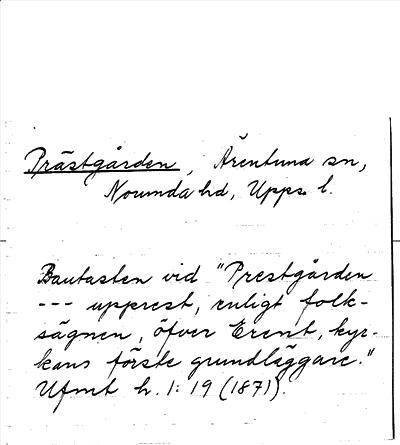 Prästgården, Ärentuna sn,
Norunda hd, Upps. l.
Bautasten vid "Prestgården
--- upprest, enligt folk-
sägnen, öfver Erent, kyr-
kans förste grundläggare."
Ufmt h. 1: 19 (1871).